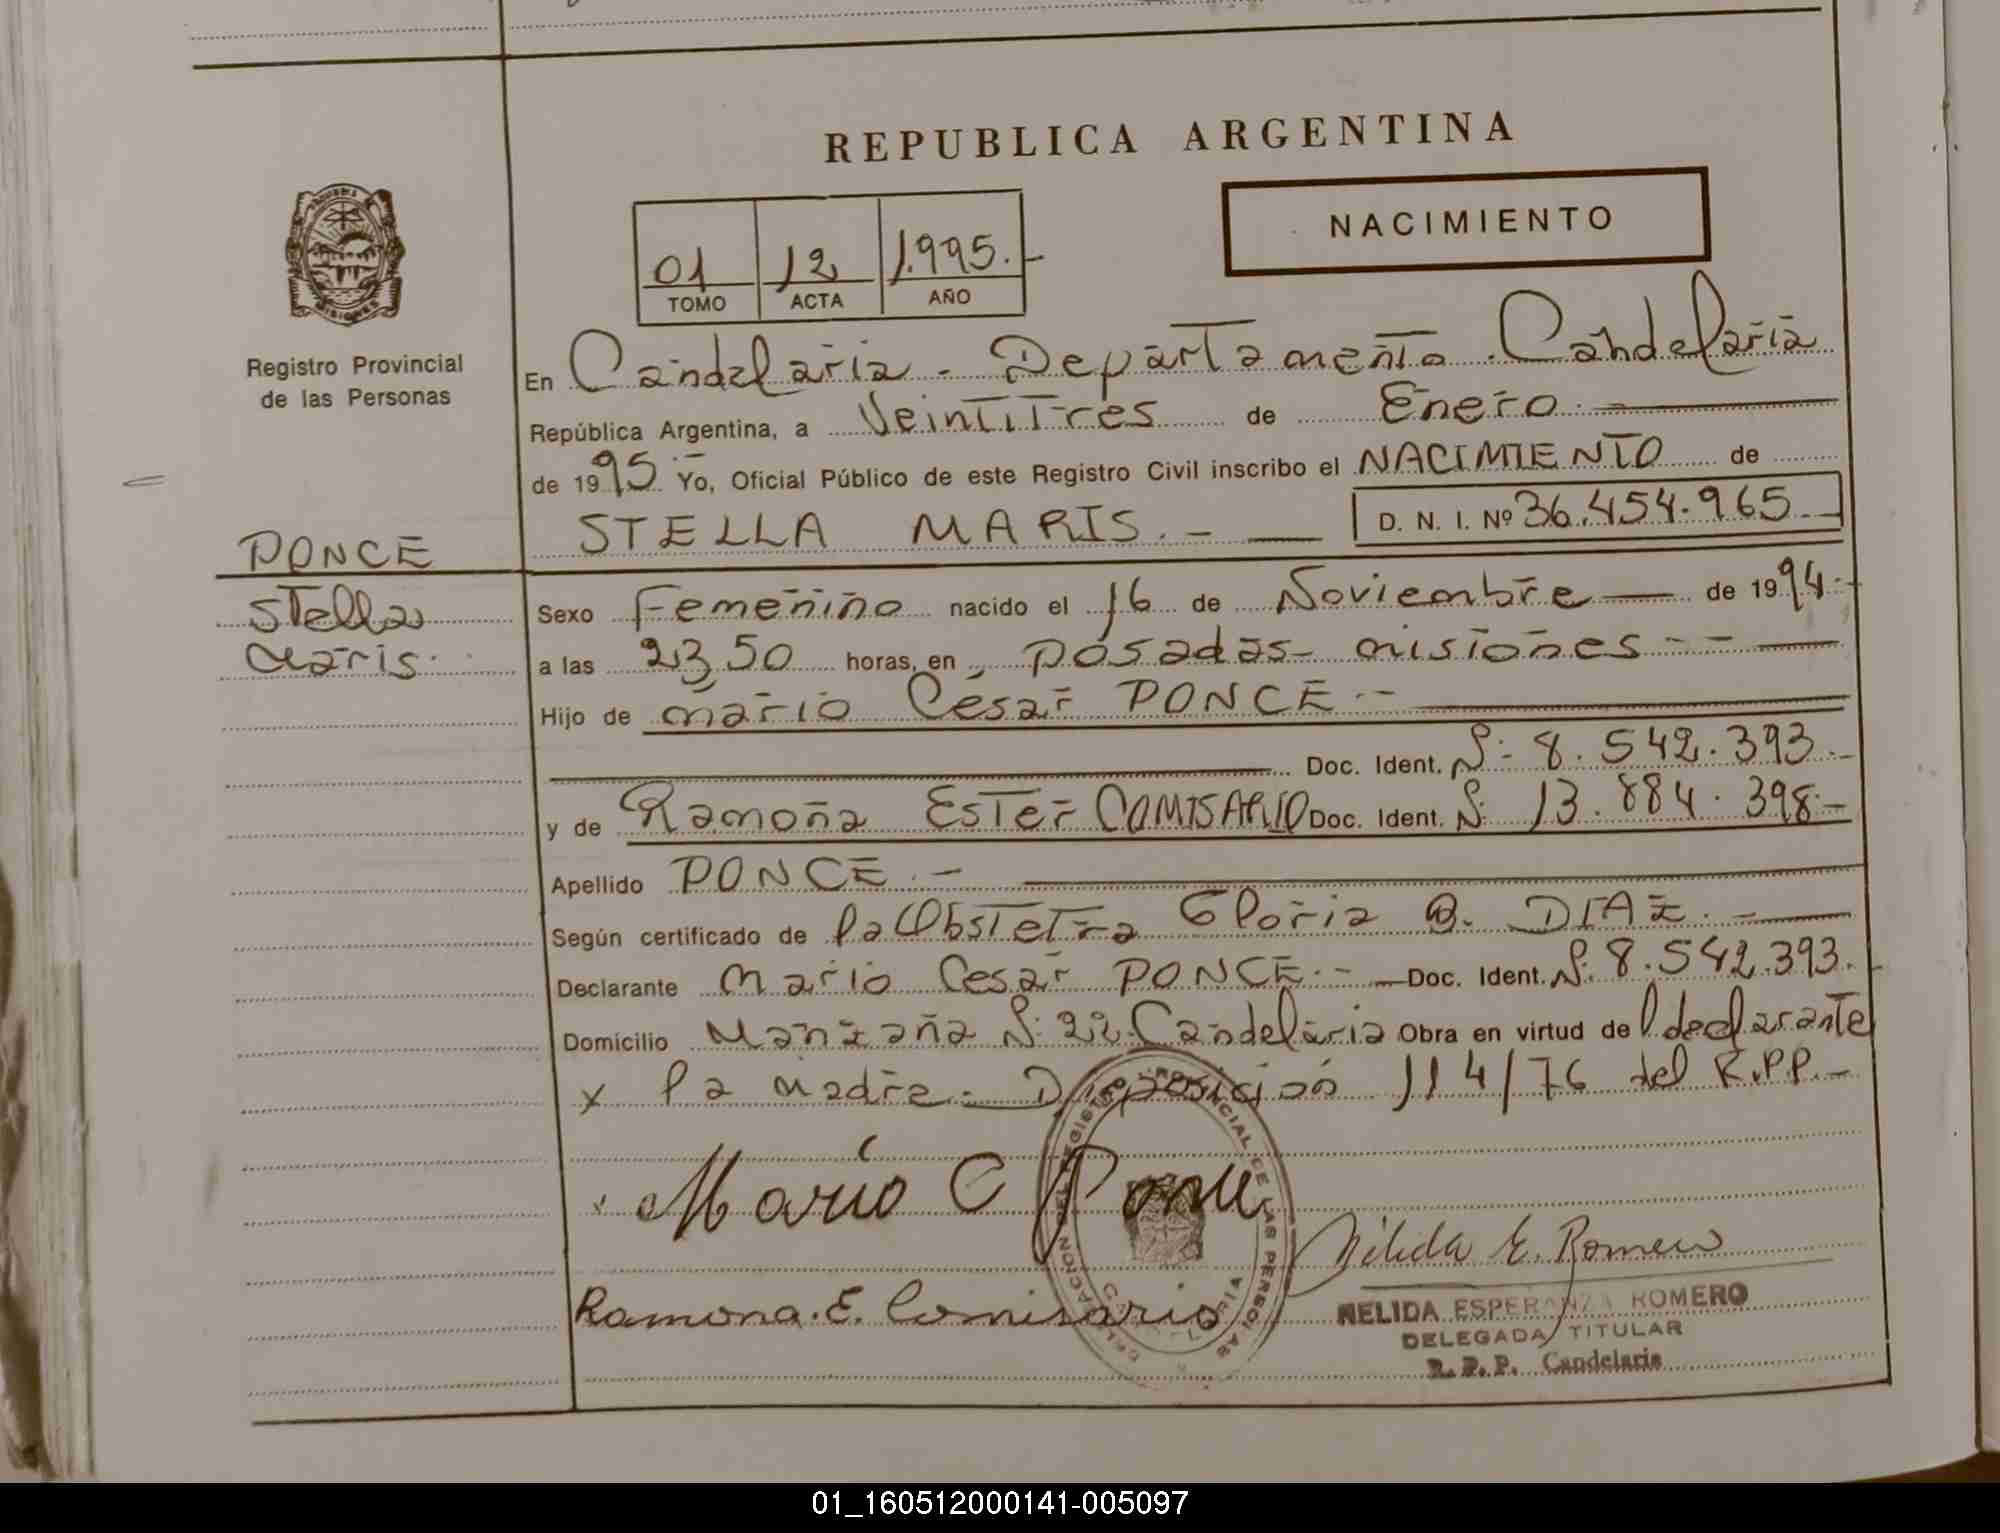 REPUBLICA ARGENTINA
NACIMIENTO
01 12 1.995.-
TOMO ACTA AÑO
Registro Provincial
de las Personas
En Candelaria - Departamento Candelaria
República Argentina, a Veintitres de Enero.-
de 1995.- Yo, Oficial Público de este Registro Civil inscribo el NACIMIENTO de
STELLA MARIS.- D. N. I. Nº 36.454.965
PONCE
Stella
Maris.
Sexo Femenino nacido el 16 de Noviembre de 1994.-
a las 23,50 horas, en Posadas - Misiones --
Hijo de Mario César PONCE.-
Doc. Ident. Nº: 8.542.393.-
y de Ramona Ester COMISARIO Doc. Ident. Nº: 13.884.398.-
Apellido PONCE.-
Según certificado de la Obstetra Gloria B. DIAZ.-
Declarante Mario Cesar PONCE.- Doc. Ident. Nº: 8.542.393.-
Domicilio Manzana Nº: 22 Candelaria Obra en virtud de l declarante
y la Madre.- Disposición 114/76 del R.P.P.-
Mario C Ponce
DELEGACION DEL REGISTRO PROVINCIAL DE LAS PERSONAS
CANDELARIA
Nélida E. Romero
Ramona. E. Comisario
NELIDA ESPERANZA ROMERO
DELEGADA TITULAR
R. P. P. Candelaria
01_160512000141-005097